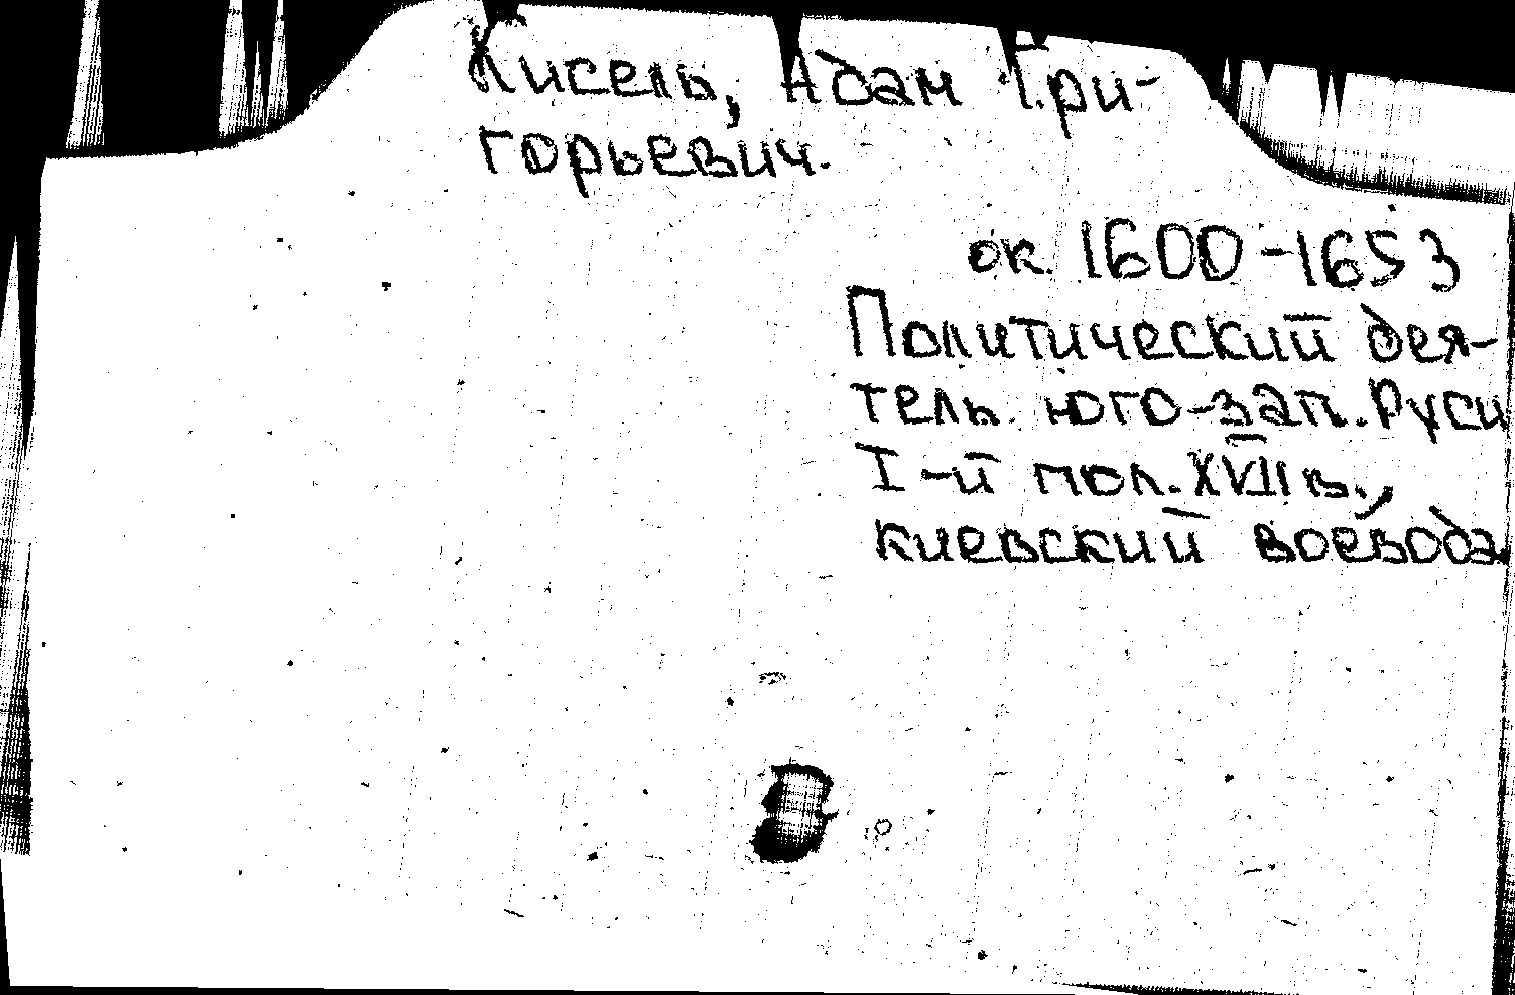 Кисель, Адам Гри-
горьевич.
ок. 1600-1653
Политический дея-
тель юго-зап. Руси
I-й пол. XVII в.,
киевский воевода.